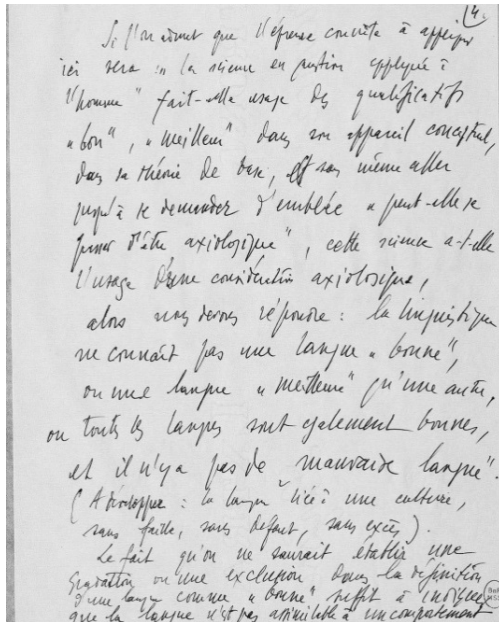 4.
Si l'on admet que l'épreuse concrète à appliquer
ici sera : « la science en question appliquée à
l'homme" fait-elle usage des qualificatifs
« bon", « meilleur" dans son appareil conceptuel,
dans sa théorie de base, et sans même aller
jusqu'à se demander d'emblée « peut-elle se
passer d'être axiologique", cette science a-t-elle
l'usage d'une considération axiologique,
alors nous devons répondre : la linguistique
ne connaît pas une langue « bonne",
ou une langue « meilleure" qu'une autre,
ou toutes les langues sont également bonnes,
et il n'y a pas de « mauvaise langue".
(A développer : la langue liée à une culture,
sans faille, sans défaut, sans excès).
Le fait qu'on ne saurait établir une
gradation ou une exclusion dans la définition
d'une langue comme « bonne" suffit à indiquer
que la langue n'est pas assimilable à un comportement